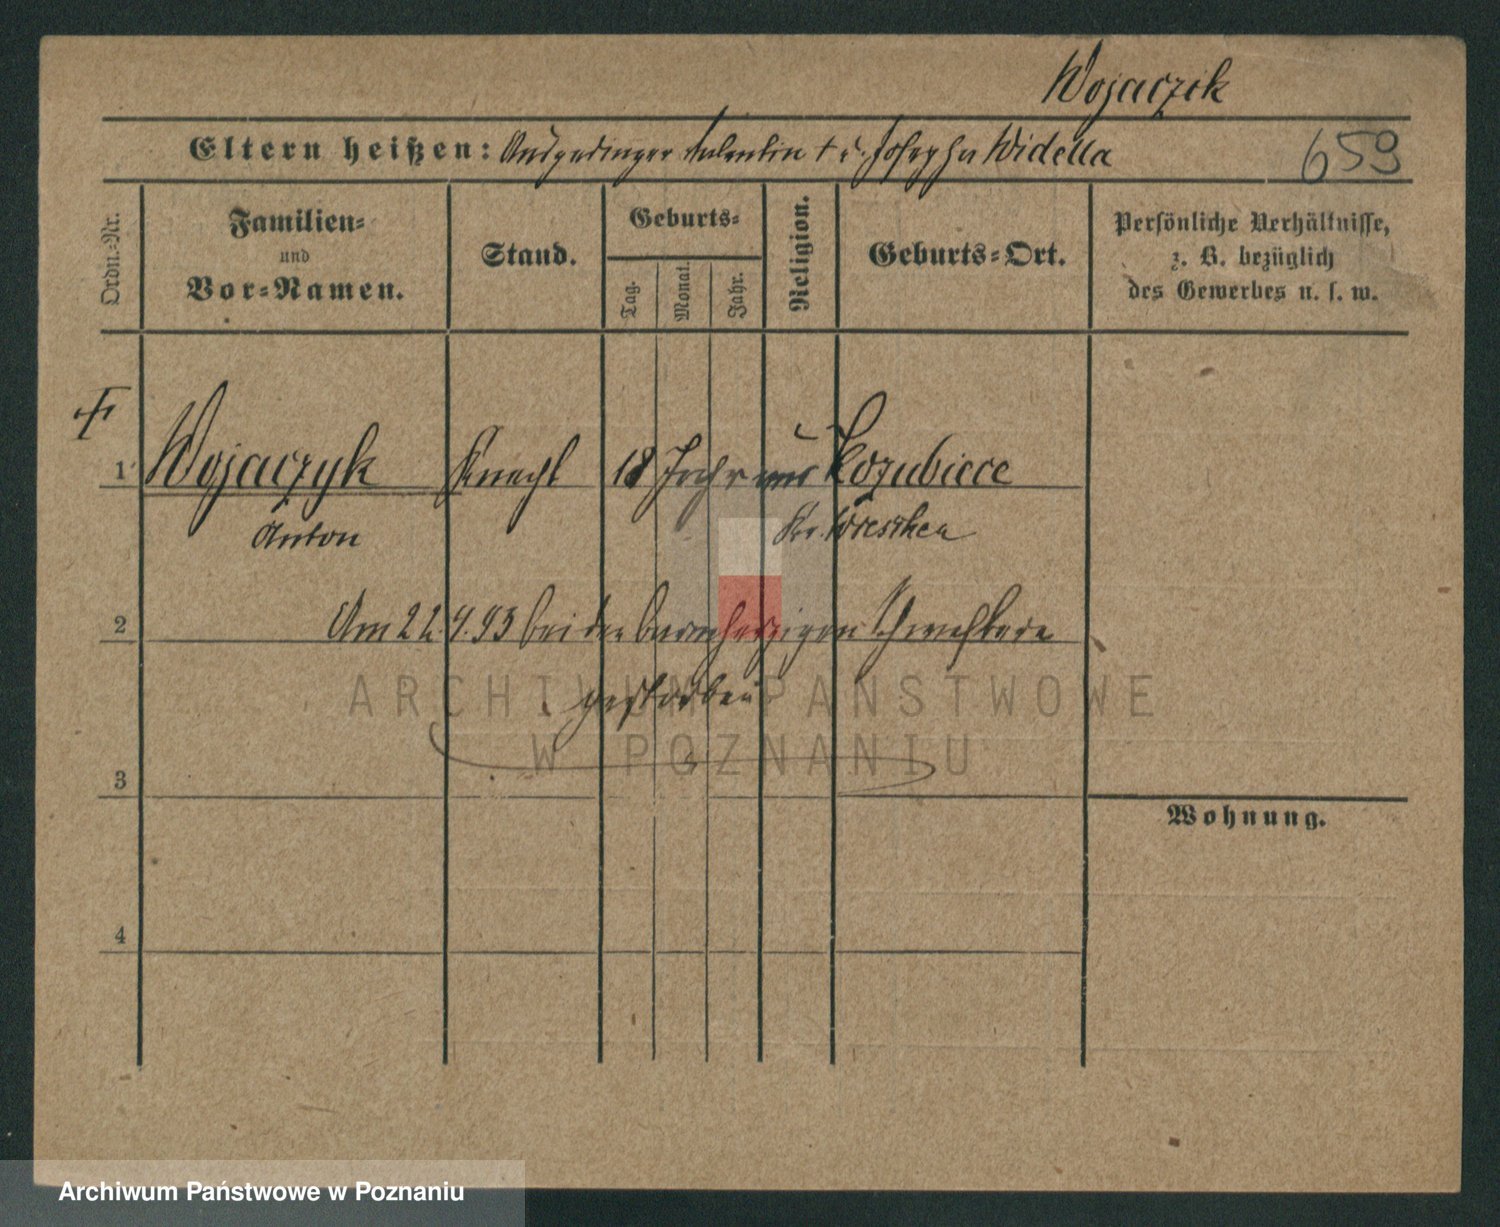 Wojaczik
Eltern heißen: Ausgedinger Valentin † u. Josepha Widella
659
Ordn.-Nr.
Familien-
und
Vor-Namen.
Stand.
Geburts-
Tag.
Monat.
Jahr.
Religion.
Geburts-Ort.
Persönliche Verhältnisse,
z. B. bezüglich
des Gewerbes u. s. w.
†
1 Wojaczyk Knecht 18 Jahr aus Kozubiece
Anton Kr. Wreschen
2 Am 22.4.93 bei den barmherzigen Schwestern
gestorben
ARCHIWUM PAŃSTWOWE
W POZNANIU
3
Wohnung.
4
Archiwum Państwowe w Poznaniu